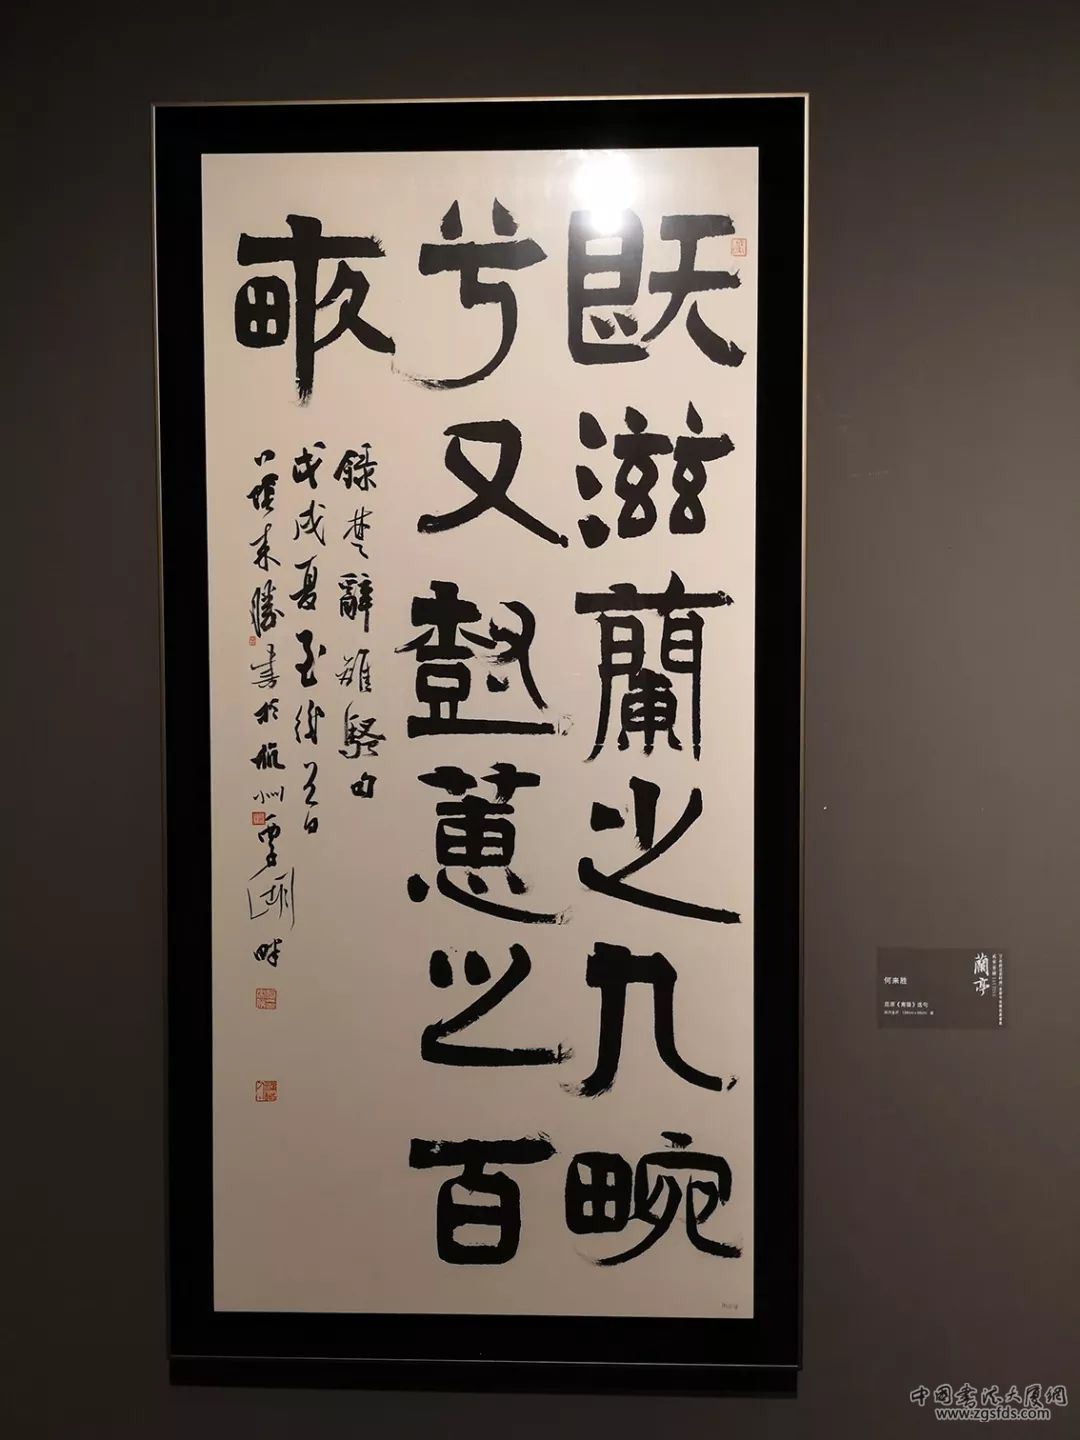 既滋蘭之九畹
兮又樹蕙之百
畝
錄楚辭離騷句
戊戌夏至後日
来勝書於杭州西湖畔
何来胜
屈原《离骚》选句
蘭亭
中國書法大廈網
www.zgsfds.com